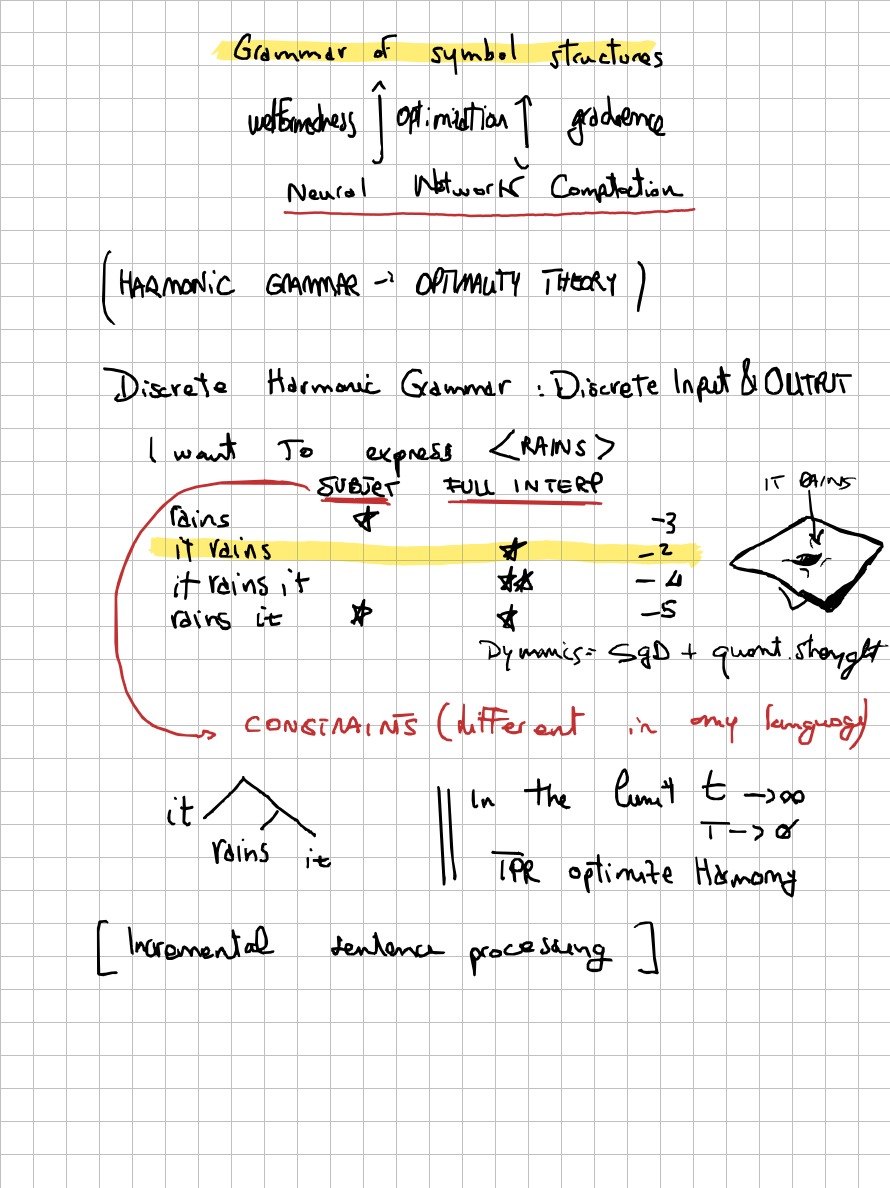 Grammar of symbol structures
wellformedness optimization gradience
Neural Network Computation
(HARMONIC GRAMMAR → OPTIMALITY THEORY)
Discrete Harmonic Grammar : Discrete Input & OUTPUT
I want To express <RAINS>
SUBJET FULL INTERP
IT RAINS
rains ★ -3
it rains ★ -2
it rains it ★★ -4
rains it ★ ★ -5
Dynamics = SgD + quant.
CONSTRAINTS (different in any language)
it
rains it
In the limit t → ∞
T → 0
TPR optimize Harmony
[Incremental sentence processing]